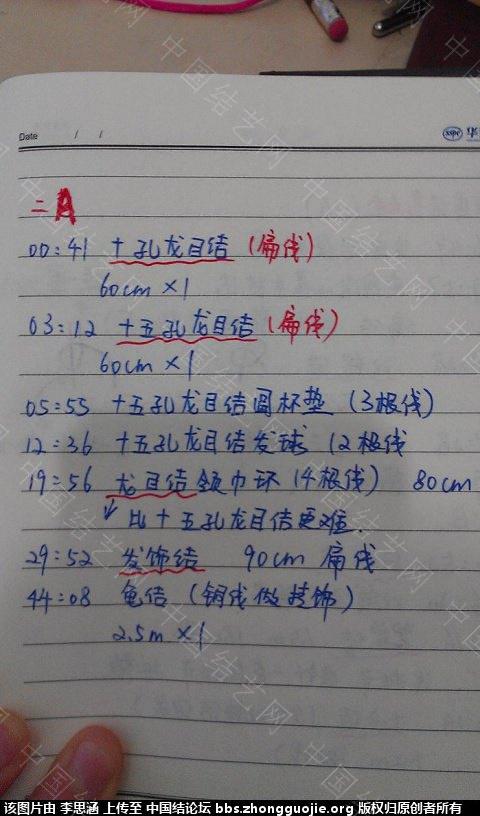 Date / /
二 A
00:41 十孔龙目结 (扁线)
60cm ×1
03:12 十五孔龙目结 (扁线)
60cm ×1
05:55 十五孔龙目结圆杯垫 (3根线)
12:36 十五孔龙目结发球 (2根线
19:56 龙目结领巾环 (4根线) 80cm
比十五孔龙目结更难.
29:52 发饰结 90cm 扁线
44:08 龟结 (铜线做装饰)
2.5m ×1
中国结艺网
该图片由 李思涵 上传至 中国结论坛 bbs.zhongguojie.org 版权归原创者所有